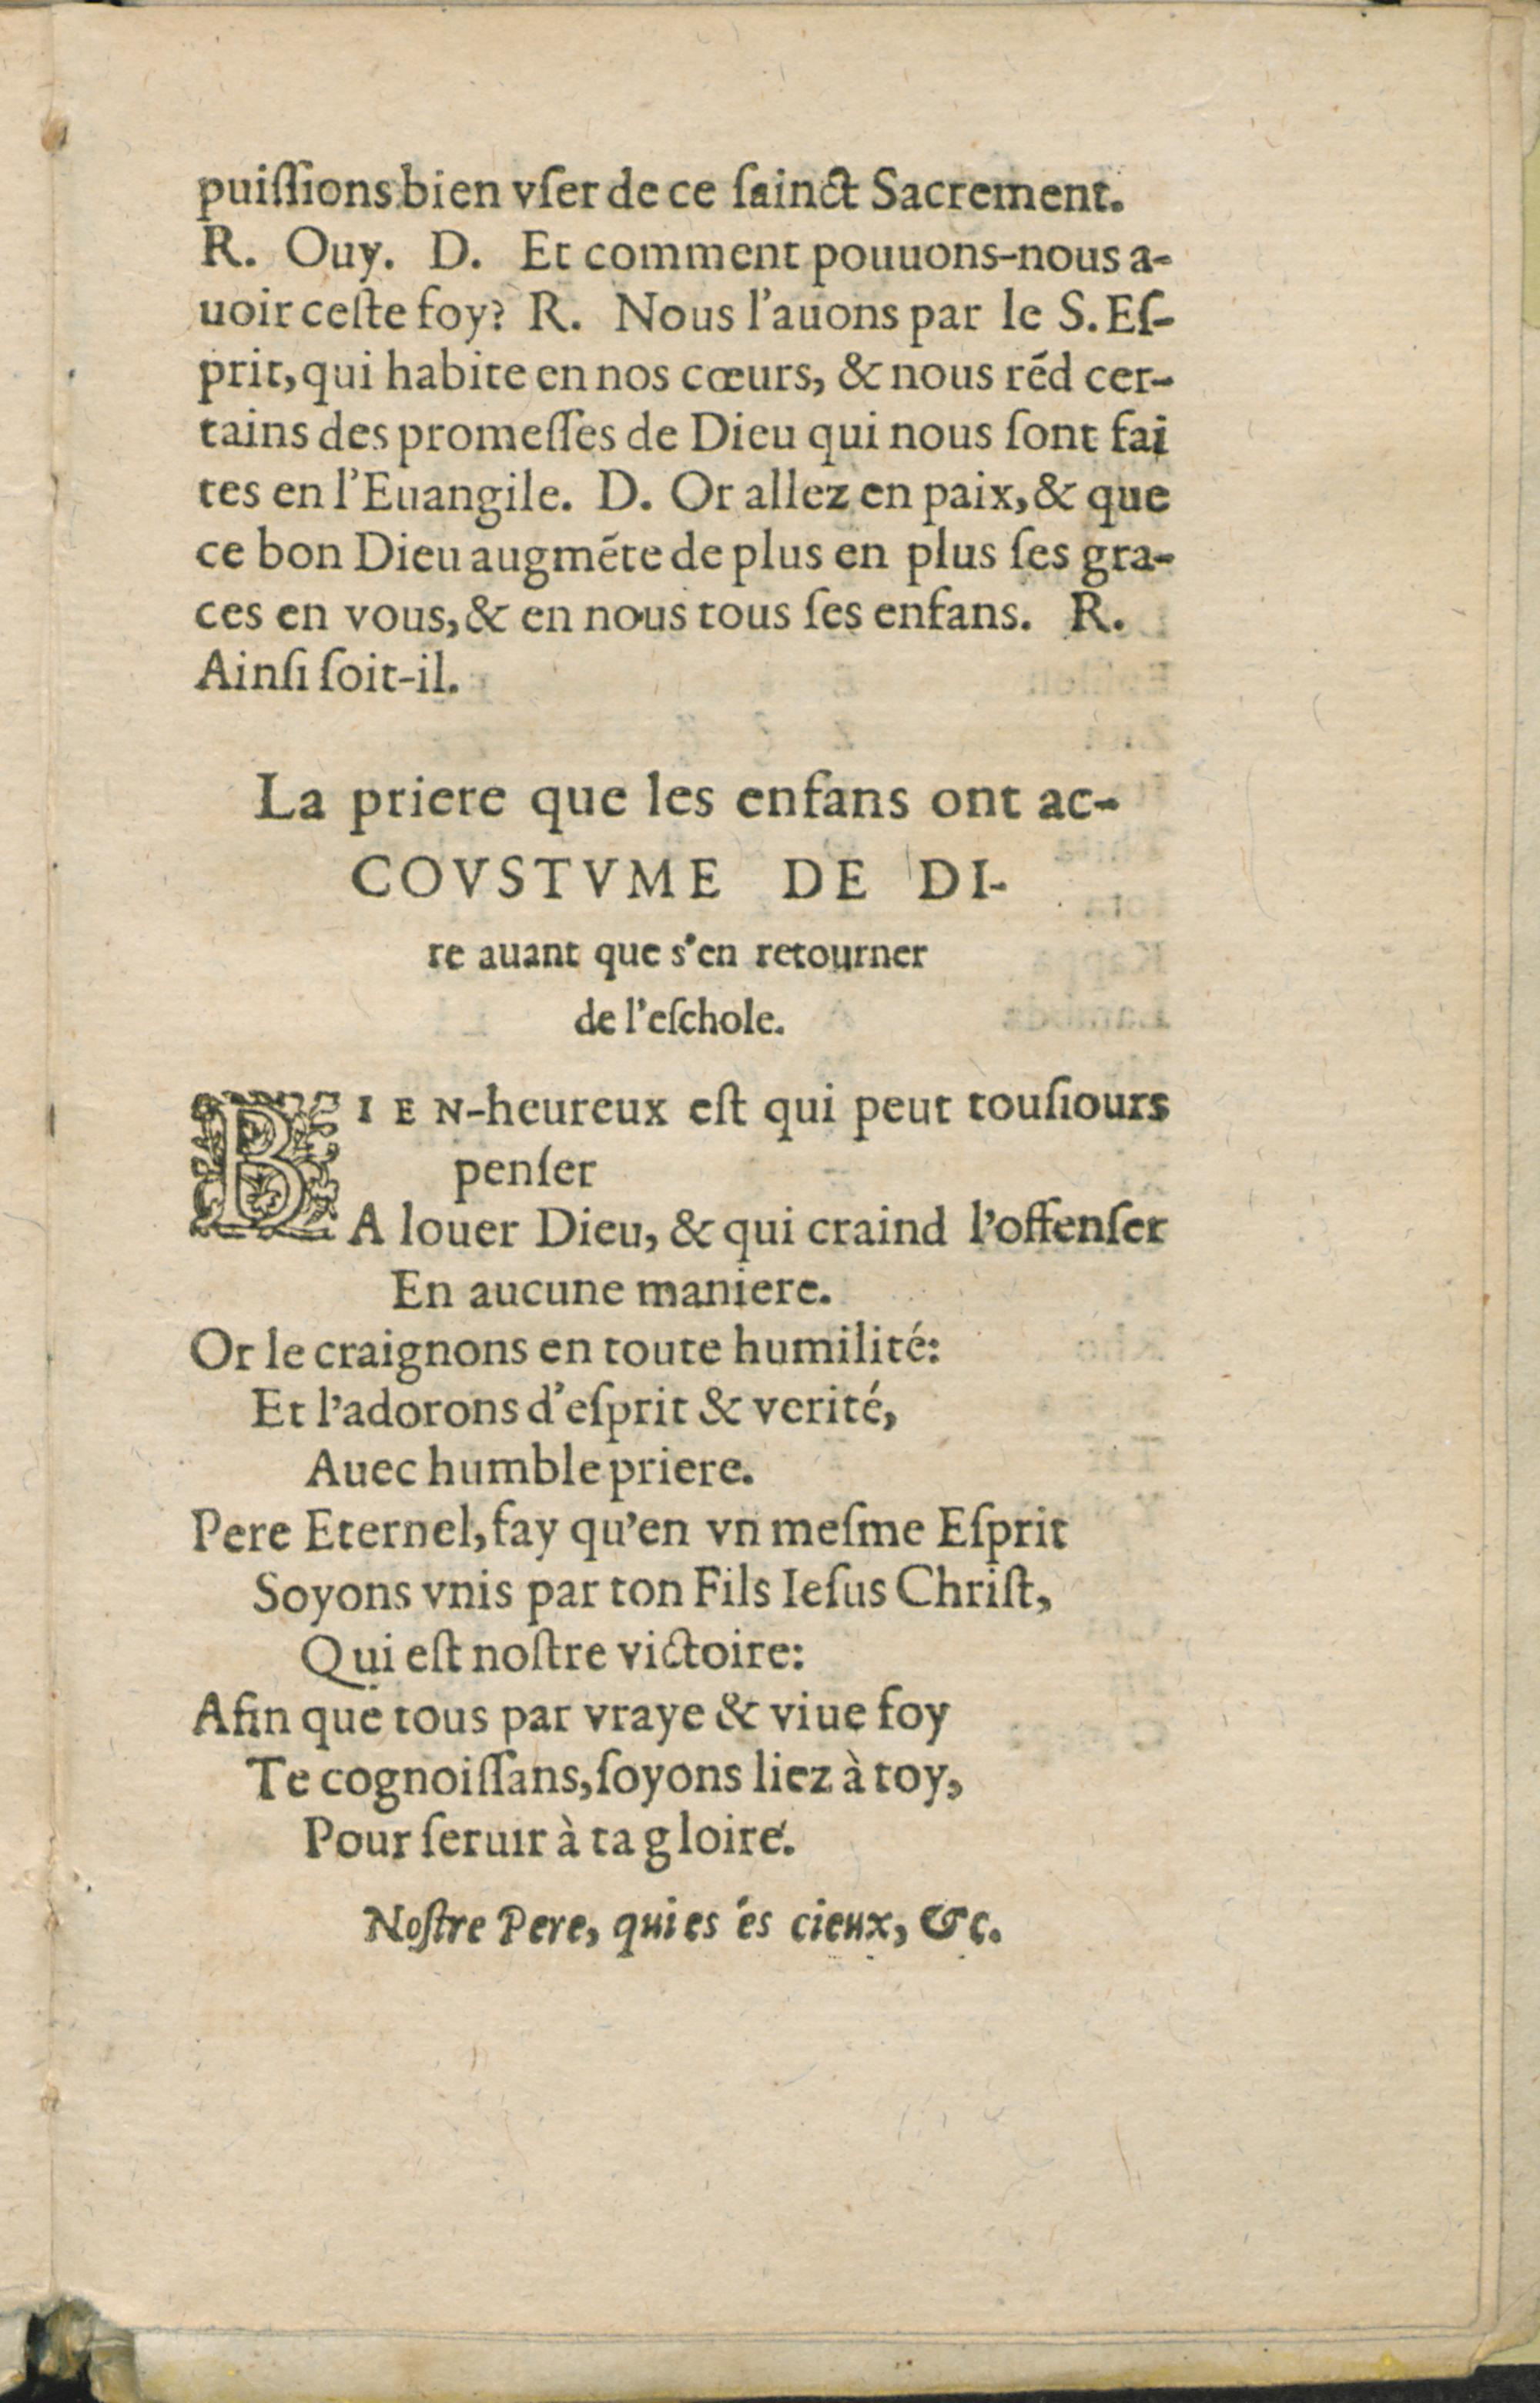 puiſſions bien vſer de ce ſainct Sacrement.
R. Ouy. D. Et comment pouuons-nous a-
uoir ceſte foy? R. Nous l'auons par le S. Eſ-
prit, qui habite en nos cœurs, & nous rēd cer-
tains des promeſſes de Dieu qui nous ſont fai
tes en l'Euangile. D. Or allez en paix, & que
ce bon Dieu augmēte de plus en plus ſes gra-
ces en vous, & en nous tous ſes enfans. R.
Ainſi ſoit-il.
La priere que les enfans ont ac-
COVSTVME DE DI-
re auant que s'en retourner
de l'eſchole.
BIEN-heureux eſt qui peut touſiours
penſer
A louer Dieu, & qui craind l'offenſer
En aucune maniere.
Or le craignons en toute humilité:
Et l'adorons d'eſprit & verité,
Auec humble priere.
Pere Eternel, fay qu'en vn meſme Eſprit
Soyons vnis par ton Fils Ieſus Chriſt,
Qui eſt noſtre victoire:
Afin que tous par vraye & viue foy
Te cognoiſſans, ſoyons liez à toy,
Pour ſeruir à ta gloire.
Noſtre Pere, qui es és cieux, &c.